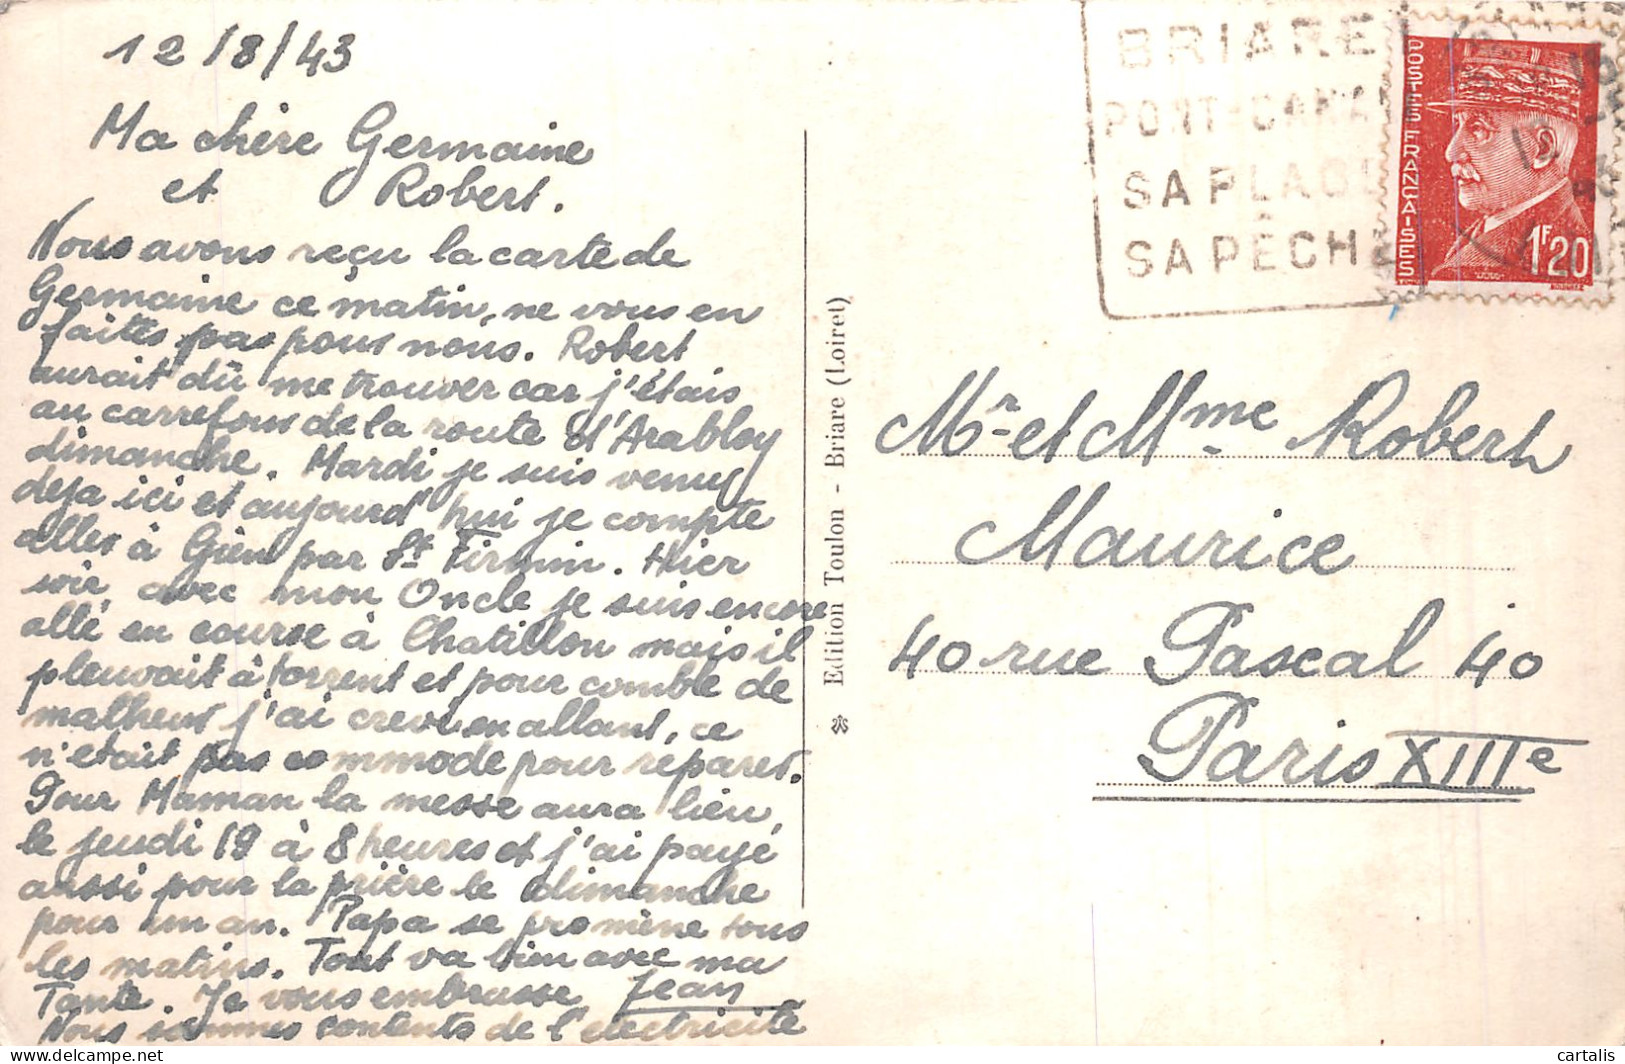 12/8/43
Ma chère Germaine
et Robert.
Nous avons reçu la carte de
Germaine ce matin, ne vous en
faites pas pour nous. Robert
aurait dû me trouver car j'étais
au carrefour de la route d'Arabloy
dimanche. Mardi je suis venu
deja ici et aujourd'hui je compte
aller à Gien par St Firmin. Hier
soir avec mon Oncle je suis encore
allé en course à Chatillon mais il
pleuvait à torrent et pour comble de
malheur j'ai crevé en allant, ce
n'etait pas commode pour réparer.
Pour Maman la messe aura lieu
le jeudi 19 à 8 heures et j'ai payé
aussi pour la prière le dimanche
pour un an. Papa se promène tous
les matins. Tout va bien avec ma
Tante. Je vous embrasse Jean
Nous sommes contents de l'électricité
Edition Toulon - Briare (Loiret)
BRIARE
PONT-CANAL
SA PLAGE
SA PÊCHE
POSTES FRANÇAISES
1F20
Mr et Mme Robert
Maurice
40 rue Pascal 40
Paris XIIIe
cartalis